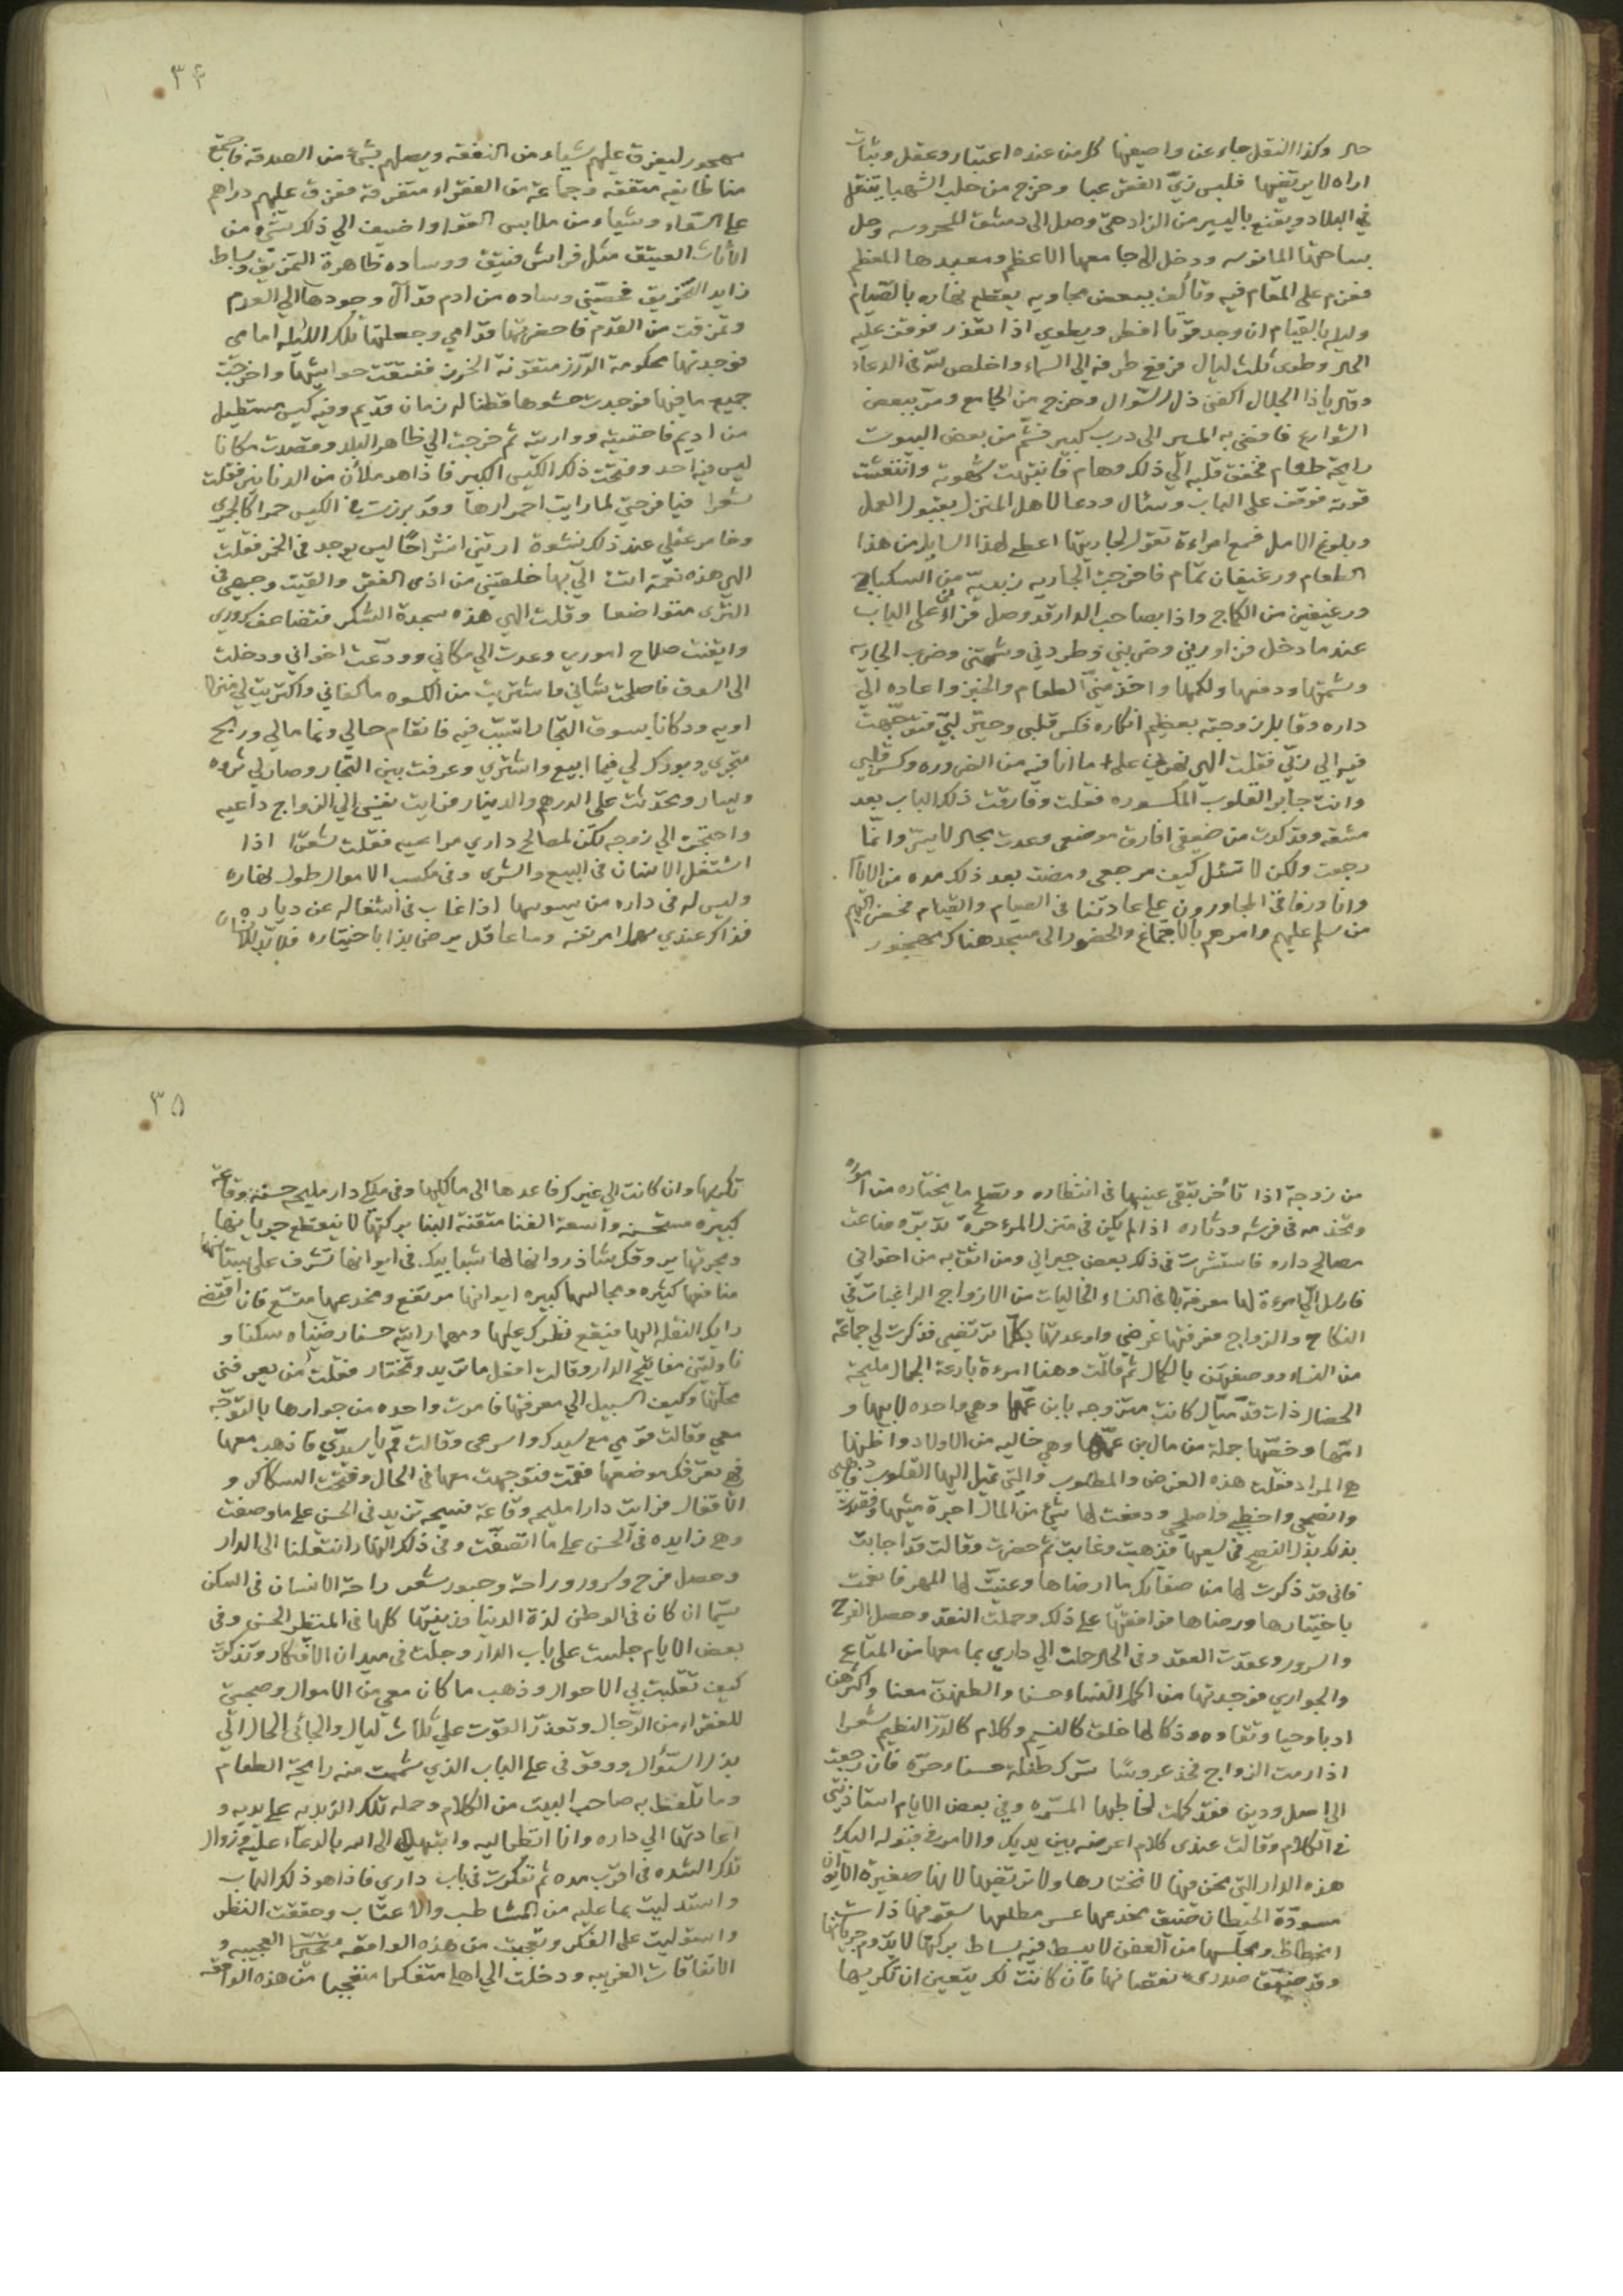 حال وكذا النقل جاء عن واصفها كل من عنده اعتبار وعقل وثبات
اراه لا يرتضيها فلبس زيّ الفقر عبا وخرج من حلب الشهبا يتنقل
في البلاد ويقنع باليسير من الزاد حتى وصل الى دمشق المحروسه وحل
بساحتها المانوسه ودخل الى جامعها الاعظم ومعبدها المعظم
فعزم على المقام فيه وتألف ببعض مجاوريه يقطع نهاره بالصيام
وليله بالقيام ان وجد قوتا افطر ويطوي اذا تعذر فوقف عليه
الحال وطوى ثلث ليال فرفع طرفه الى السماء واخلص نيته في الدعاء
وقال ياذا الجلال اكفني ذل السّوال وخرج من الجامع ومرّ ببعض
الشوارع فافضى به المسير الى درب كبير فشمّ من بعض البيوت
رايحة طعام فخفق قلبه الي ذلك وهام فانتبهت شهوته وانتعشت
قوته فوقف على الباب وسئال ودعا لاهل المنزل بقبول العمل
وبلوغ الامل فسمع امراءة تقول لجاريتها اعطي لهذا السايل من هذا
الطعام ورغيفان تمام فاخرجت الجاريه زبديّة من السكباج
ورغيفين من الكماج واذا بصاحب الدار قد وصل فراني على الباب
عندما دخل فزاورني وضربني وطردني وشتمني وضرب الجاريه
وشتمها ودفعها ولكمها واخذ مني الطعام والخبز واعاده الي
داره وقابل زوجته بعظيم انكاره فكسر قلبي وحيّر لبّي فتوجّهت
فيه الى ربّي فقلت الهي نهرني على ما انا فيه من الضروره وكسر قلبي
وانت جابر القلوب المكسوره فقلت وفارقت ذلك الباب بعد
مشقه وقد كدت من ضعفي افارق موضعي وعدت بحال لا يسرّ وانمّا
رجعت ولكن لا تسئل كيف مرجعي ومضت بعد ذلك مده من الايام
وانا ورفاقي المجاورون على عادتنا في الصيام والقيام فحضر اليهم
من سلم عليهم وامرهم بالاجتماع والحضور الى مسجد هناك مهجور
٣٤
مهجور ليفرق عليهم شياء من النفقه ويصلهم بشئ من الصدقه فاجتمع
منا طايفه متفقه وجماعة من الفقراء متفرقة ففرق عليهم دراهم
على السّواء وشياء من ملابس الفقرا واضيف الي ذلك شئ من
الأثاث العتيق مثل فراش فتيق ووساده ظاهرة التمزيق وبساط
زايد التخريق فخصّني وساده من ادم قد آل وجودها الي العدم
وتمزقت من القدم فاحضرتها قدامي وجعلتها تلك الليله امامي
فوجدتها محكومة الدرز متقونة الخرز ففتقت حواشيها واخرجت
جميع ما فيها فوجدت حشوها قطنا له زمان قديم وفيه كيس مستطيل
من اديم فاخفيته وواريته ثم خرجت الي ظاهر البلد وقصدت مكانا
ليس فيه احد وفتحت ذلك الكيس الكبير فاذا هو ملأن من الدنانير فقلت
شعرا فيا فرحتي لما رايت احمرارها وقد برزت من الكيس حمرا كالجمر
وخامر عقلي عند ذلك نشوة ارتني انشراحًا ليس يوجد في الخمر فقلت
الهي هذه نعمة انت اليّ بها خلصتني من اذى الفقر والقيت وجهي في
الثرى متواضعا وقلت الهي هذه سجدة الشكر فتضاعف سروري
وايقنت صلاح اموري وعدت الي مكاني وودّعت اخواني ودخلت
الى السوق فاصلحت شاني فاشتريت من الكسوه ما كفاني واكتريت لي منزلا
اويه ودكانا بسوق التجّار اتسبّب فيه فانتقام حالي ونما مالي وربح
متجري وبورك لي فيما ابيع واشتري وعرفت بين التجار وصار لي ثروه
ويسار وتحدّثت على الدرهم والدينار فرايت نفسي الي الزواج داعيه
واحتجت الي زوجه تكن لمصالح داري مراعيه فقلت شعرًا اذا
اشتغل الانسان في البيع والشرى وفي مكسب الاموال طول نهاره
وليس له في داره من يسوسها اذا غاب في اشغاله عن دياره
فذاك عندي مهملا امر بيته وما عاقل يرضى بذا باختياره فلا بدّ للانسان
من زوجة اذا تأخر تبقى عينيها في انتظاره وتصلح ما يختاره من امواره
وتخدمه في فرشه ودثاره اذا لم يكن في منزل المرء حرة تدبّره ضاعت
مصالح داره فاستشرت في ذلك بعض جيراني ومن اثق به من اخواني
فارسل اليّ امرءة لها معرفة بالنساء الخاليات من الازواج الراغبات في
النكاح والزواج فعرفتها غرضي واوعدتها بكلما ترتضي فذكرت لي جماعة
من النساء ووصفتهن بالكمال ثم قالت وهنا امرءة بارعة الجمال مليحة
الخصال ذات قدّ ميّال كانت متزوجه بابن عمّها وهي واحده لابيها و
امّها وخصّها جملة من مال بن عمّها وهي خاليه من الاولاد واظنها
هي المراد فقلت هذه الغرض والمطلوب والتي تميل اليها القلوب فاذهبي
وانصحي واخطبي واصلحي ودفعت لها شئ من المال اجرة مشيها وفعلت
بذلك بذل النصح في سعيها فذهبت وغابت ثم حضرت وقالت قد اجابت
فاني قد ذكرت لها من صفاتك ما ارضاها وعنيت لها المهر فانعمت
باختيارها ورضاها فوافقتها على ذلك وحملت النقد وحصل الفرح
والسرور وعقدت العقد وفي الحال حملت الي داري بما معها من المتاع
والجواري فوجدتها من اكمل النساء حسنا والطفهن معنا واكثرهن
ادبا وحيا ونقاوه وذكا لها خلق كالنسيم وكلام كالدرّ النظيم شعرا
اذا رمت الزواج فخذ عروسًا تسرك طفلة حسناء حرّة فان رجعت
الي اصل ودين فقد كملت لخاطبها المسرّه وفي بعض الايام استاذنتني
في الكلام وقالت عندى كلام اعرضه بين يديك والامر في قبوله اليك
هذه الدار التي نحن فيها لا نختارها ولا نرتضيها لانها صغيرة الايوان
مسودّة الحيطان ضيق مخدعها عسر مطلعها سقوفها ذات
انحطاط ومجلسها من العفن لا يبسط فيه بساط بركتها لا يدوم جريانها
وقد ضيّق صدرى نقصانها فان كانت لك يتعين ان تكريها
٣٥
تكريها وان كانت الي غيرك فاعدها الى مالكيها وفي ملكي دار مليحه حسنه وقاعة
كبيره مستحسنه واسعة الفنا متقنة البنا بركتها لا ينقطع جريانها
وبحرتها يروقك شاذروانها لها شبابيك في ايوانها تشرف على بستانها
منافعها كثيره ومجالسها كبيره ايوانها مرتفع ومخدعها متسّع فان اقتضى
رايك النقله اليها فيقع نظرك عليها ومهما رايته حسنا رضيناه سكنا و
ناولتني مفاتيح الدار وقالت افعل ما تريد وتختار فقلت من يعرفني
محلّتها وكيف السبيل الي معرفتها فامرت واحده من جوارها بالتوجّه
معي وقالت قومي مع سيدك واسرعي وقالت قم يا سيدّي فاذهب معها
فهي تعرّفك موضعها فقمت فتوجهت معها في الحال وفتحت السكاكر و
الأقفال فرايت دارا مليحه وقاعة فسيحه تزيد في الحسن على ما وصفت
وهي زايده في الحسن على ما اتصفت وفي ذلك النهار انتقلنا الى الدار
وحصل فرح وسرور وراحة وحبور شعر راحة الانسان في السكن
سيّما ان كان في الوطن لذة الدنيا وزينتها كلها في المنظر الحسن وفي
بعض الايام جلست على باب الدار وجلت في ميدان الافكار وتذكرت
كيف تقلبت بي الاحوال وذهب ما كان معي من الاموال وصحبتي
للفقراء من الرّجال وتعذّر القوت علي ثلاث ليال والجأني الحال الّي
بذل السّؤال ووقوفي على الباب الذي شممت منه رايحة الطعام
وما تلفظ به صاحب البيت من الكلام وحمله تلك الزبديه على يديه و
اعادتها الي داره وانا انظر اليه وابتهالي الى الله بالدعاء عليه وزوال
تلك الشده في اقرب مده ثم تفكرت في باب داري فاذا هو ذلك الباب
واستدليت بما عليه من المشاطب والاعتاب وحققت النظر
واستوليت على الفكر وتعجبت من هذه الواقعه العجيبه و
الاتفاقات الغريبه ودخلت الي اهلي متفكرا متعجبا من هذه الواقعه